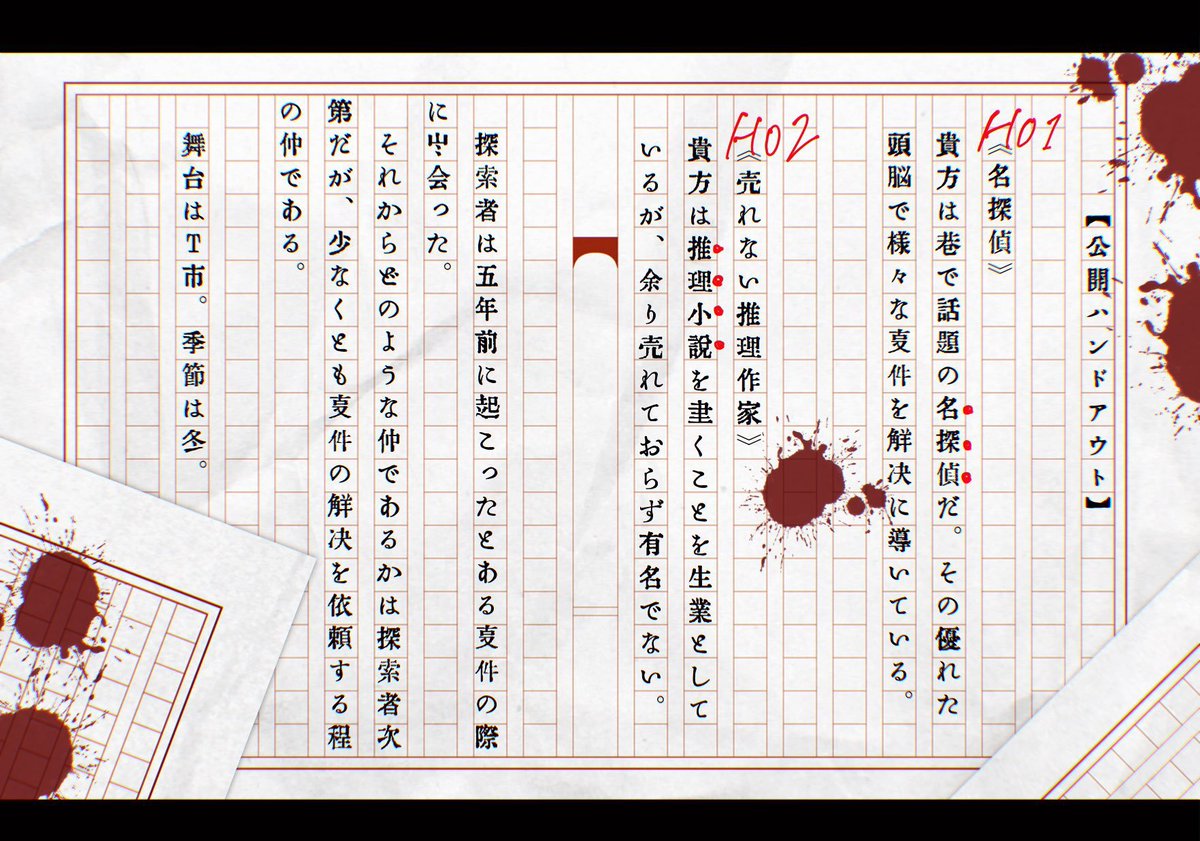 【公開ハンドアウト】
HO1
《名探偵》
貴方は巷で話題の名探偵だ。その優れた
頭脳で様々な事件を解決に導いている。
HO2
《売れない推理作家》
貴方は推理小説を書くことを生業として
いるが、余り売れておらず有名でない。
探索者は五年前に起こったとある事件の際
に出会った。
それからどのような仲であるかは探索者次
第だが、少なくとも事件の解決を依頼する程
の仲である。
舞台はT市。季節は冬。